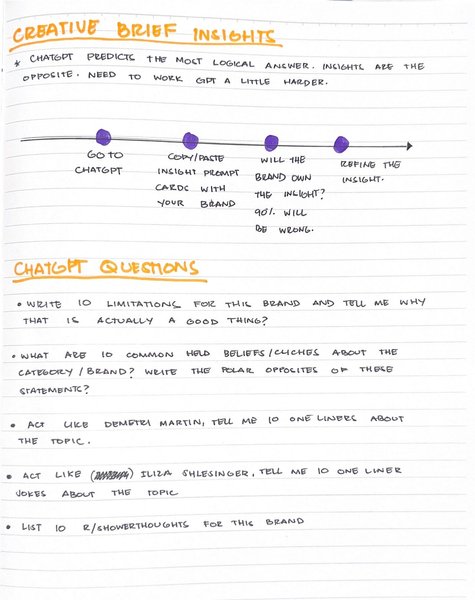 CREATIVE BRIEF INSIGHTS
* CHATGPT PREDICTS THE MOST LOGICAL ANSWER. INSIGHTS ARE THE
OPPOSITE. NEED TO WORK GPT A LITTLE HARDER.
GO TO
CHATGPT
COPY/PASTE
INSIGHT PROMPT
CARDS WITH
YOUR BRAND
WILL THE
BRAND OWN
THE INSIGHT?
90% WILL
BE WRONG.
REFINE THE
INSIGHT.
CHATGPT QUESTIONS
• WRITE 10 LIMITATIONS FOR THIS BRAND AND TELL ME WHY
THAT IS ACTUALLY A GOOD THING?
• WHAT ARE 10 COMMON HELD BELIEFS/CLICHES ABOUT THE
CATEGORY/BRAND? WRITE THE POLAR OPPOSITES OF THESE
STATEMENTS?
• ACT LIKE DEMETRI MARTIN, TELL ME 10 ONE LINERS ABOUT
THE TOPIC.
• ACT LIKE ( ) ILIZA SHLESINGER, TELL ME 10 ONE LINER
JOKES ABOUT THE TOPIC
• LIST 10 R/SHOWERTHOUGHTS FOR THIS BRAND